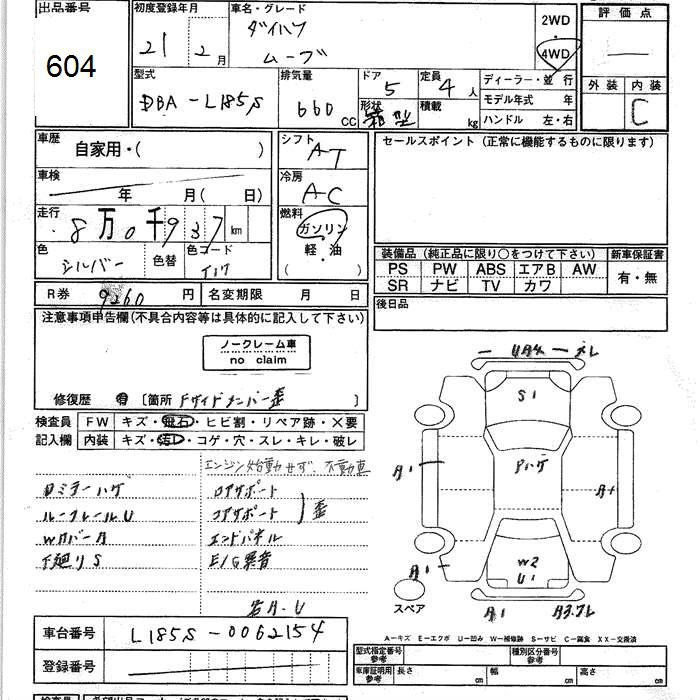 出品番号
604
初度登録年月
21年 2月
車名・グレード
ダイハツ
ムーブ
2WD
4WD
評価点
外装 内装
C
型式
DBA-L185S
排気量
660 cc
ドア
5
形状
箱型
定員
4人
積載
kg
ディーラー・並行
モデル年式 年
ハンドル 左・右
車歴
自家用・( )
車検
年 月( 日)
走行
8万0千937km
色
シルバー
色替
色コード
シフト
AT
冷房
AC
燃料
ガソリン
軽・油
( )
セールスポイント(正常に機能するものに限ります)
装備品(純正品に限り○をつけて下さい)
新車保証書
PS PW ABS エアB AW
SR ナビ TV カワ
有・無
後日品
R券 9260円
名変期限 月 日
注意事項申告欄(不具合内容等は具体的に記入して下さい)
ノークレーム車
no claim
修復歴 有 [箇所 Fサイドメンバー歪
検査員
記入欄
FW キズ・飛石・ヒビ割・リペア跡・X要
内装 キズ・汚レ・コゲ・穴・スレ・キレ・破レ
エンジン始動せず、不動車
ロアサポート
コアサポート
歪
エンドパネル
E/G異音
ドミラーハゲ
ルーフレールU
下廻りS
車台番号
L185S-0062154
登録番号
S1
Pハゲ
A1
A1
W2
U1
A1
A1
A1
スペア
A-キズ E-エクボ U-凹み W-補修跡 S-サビ C-腐食 XX-交換済
型式指定番号
参考
種別区分番号
参考
車庫証明用
参考
長さ cm
幅 cm
高さ cm